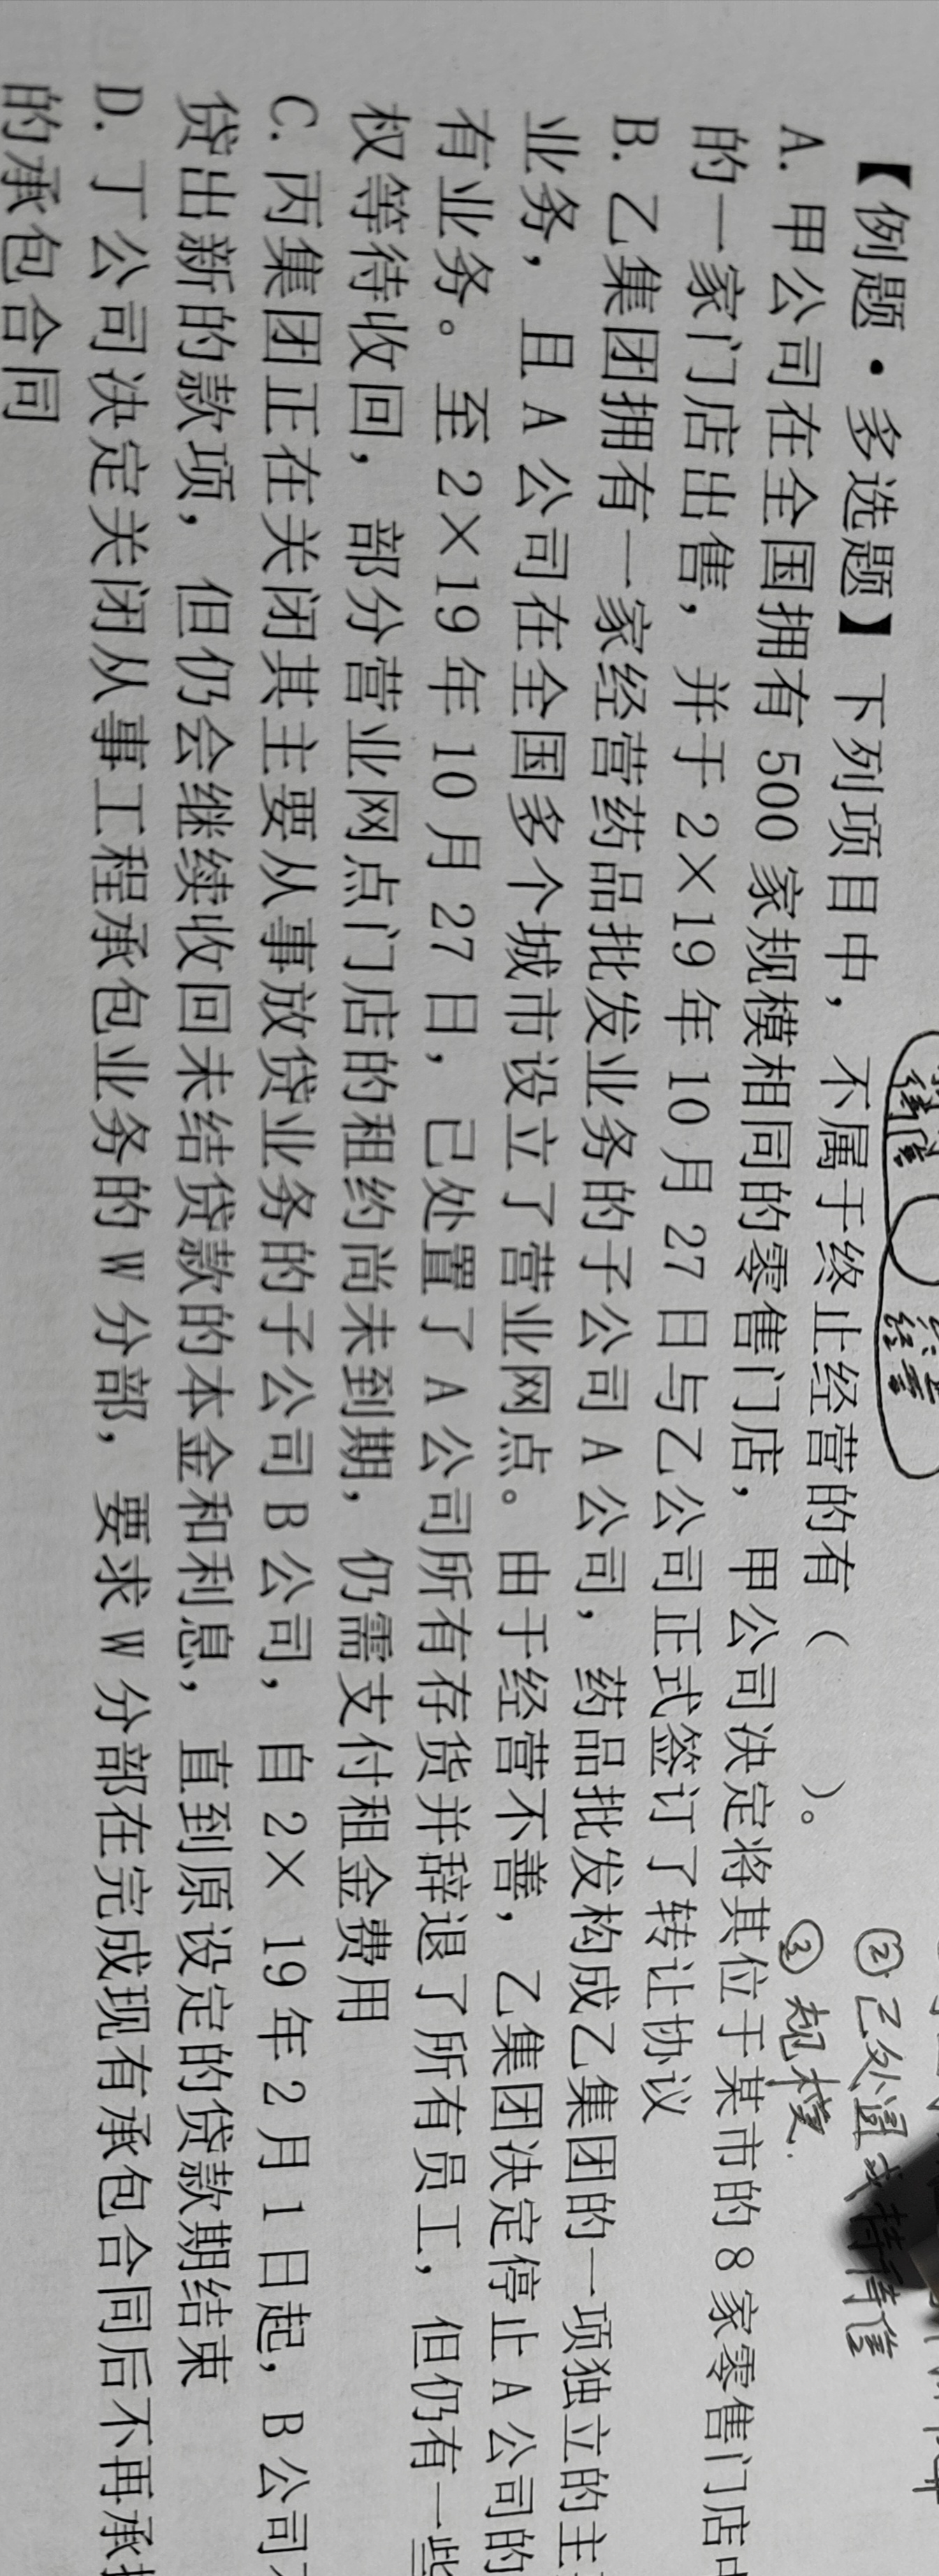 【例题·多选题】下列项目中，不属于终止经营的有（ ）。
A. 甲公司在全国拥有 500 家规模相同的零售门店，甲公司决定将其位于某市的 8 家零售门店中
的一家门店出售，并于 2×19 年 10 月 27 日与乙公司正式签订了转让协议
B. 乙集团拥有一家经营药品批发业务的子公司 A 公司，药品批发构成乙集团的一项独立的主
业务，且 A 公司在全国多个城市设立了营业网点。由于经营不善，乙集团决定停止 A 公司的
有业务。至 2×19 年 10 月 27 日，已处置了 A 公司所有存货并辞退了所有员工，但仍有一些
权等待收回，部分营业网点门店的租约尚未到期，仍需支付租金费用
C. 丙集团正在关闭其主要从事放贷业务的子公司 B 公司，自 2× 19 年 2 月 1 日起，B 公司
贷出新的款项，但仍会继续收回未结贷款的本金和利息，直到原设定的贷款期结束
D. 丁公司决定关闭从事工程承包业务的 W 分部，要求 W 分部在完成现有承包合同后不再承
的承包合同
经营
②已处置或持有待售
③规模.